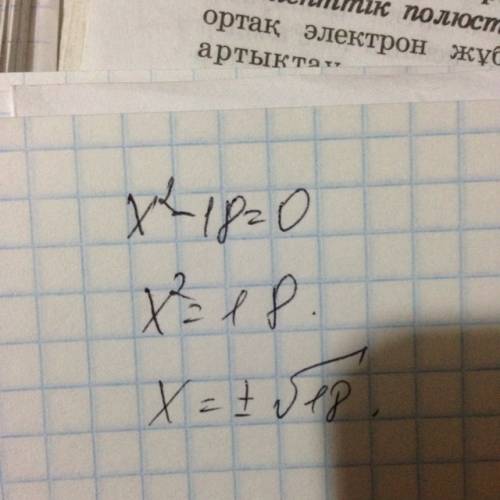 полюст
ортақ электрон жұб
артықтау
x² - 18 = 0
x² = 18.
x = ± √18.